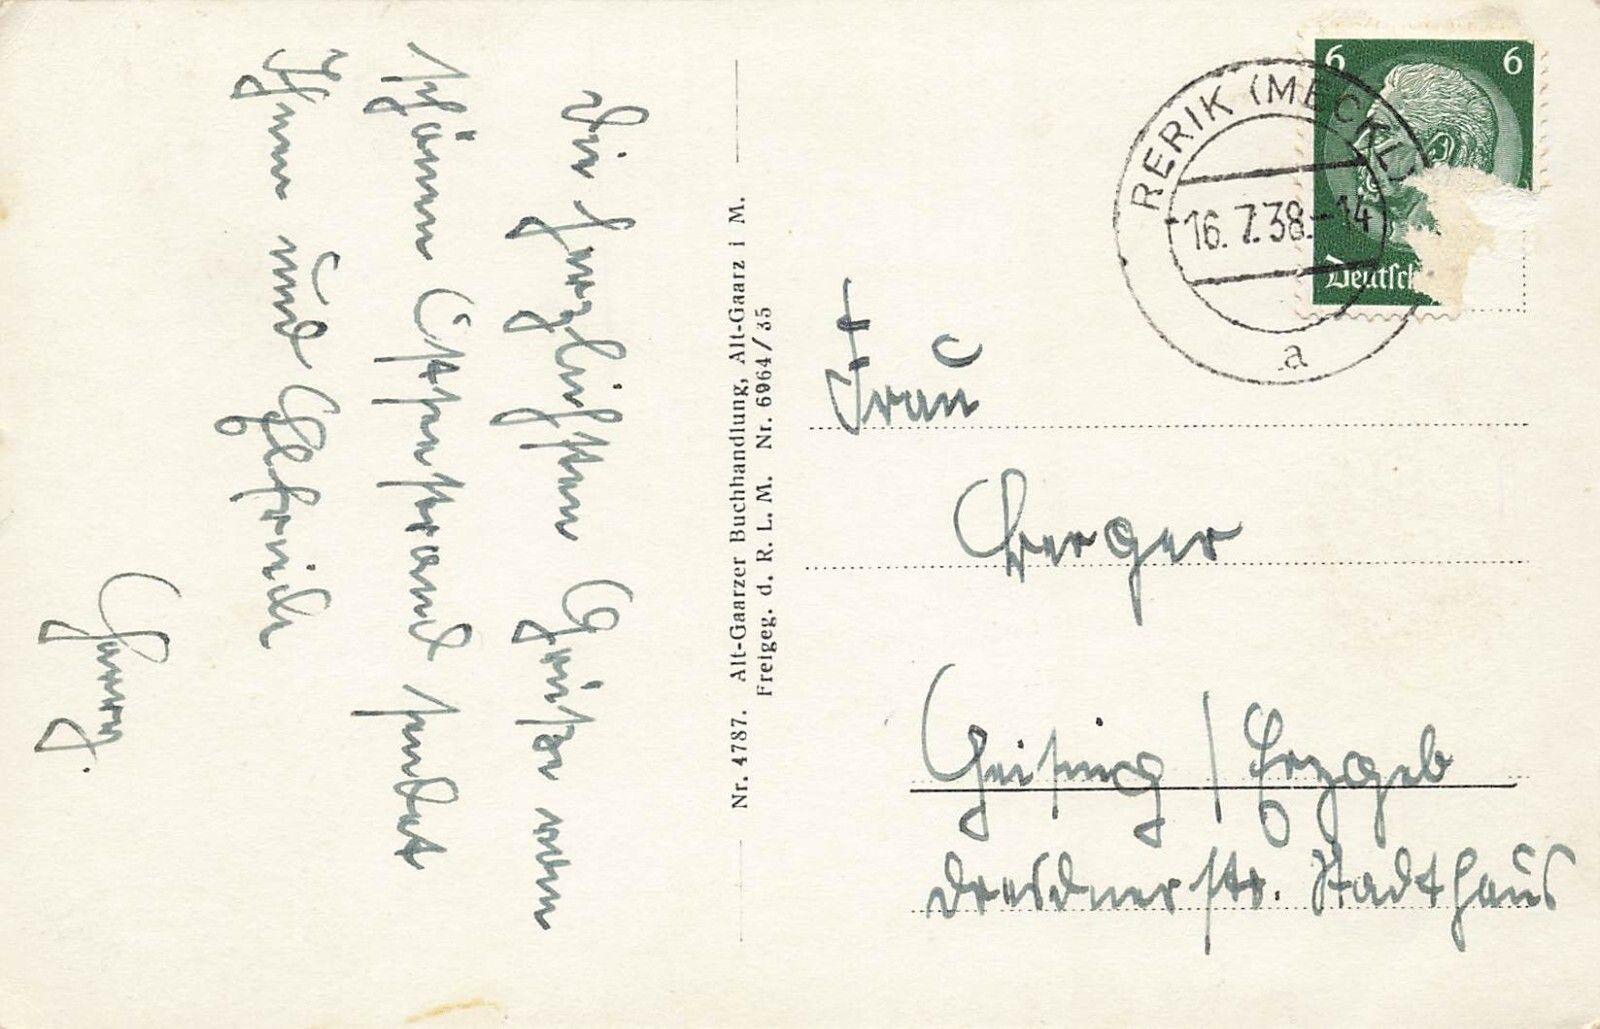 Die herzlichsten Grüße vom
schönen Ostseestrand sendet
Ihnen und Elfriede
Nr. 4787. Alt-Gaarzer Buchhandlung, Alt-Gaarz i M.
Freigeg. d. R. L. M. Nr. 6964/35
6 6
Deutsch
RERIK (MECKL)
16.7.38.-14
a
Frau
Berger
Geising / Erzgeb
Dresdnerstr. Stadthaus